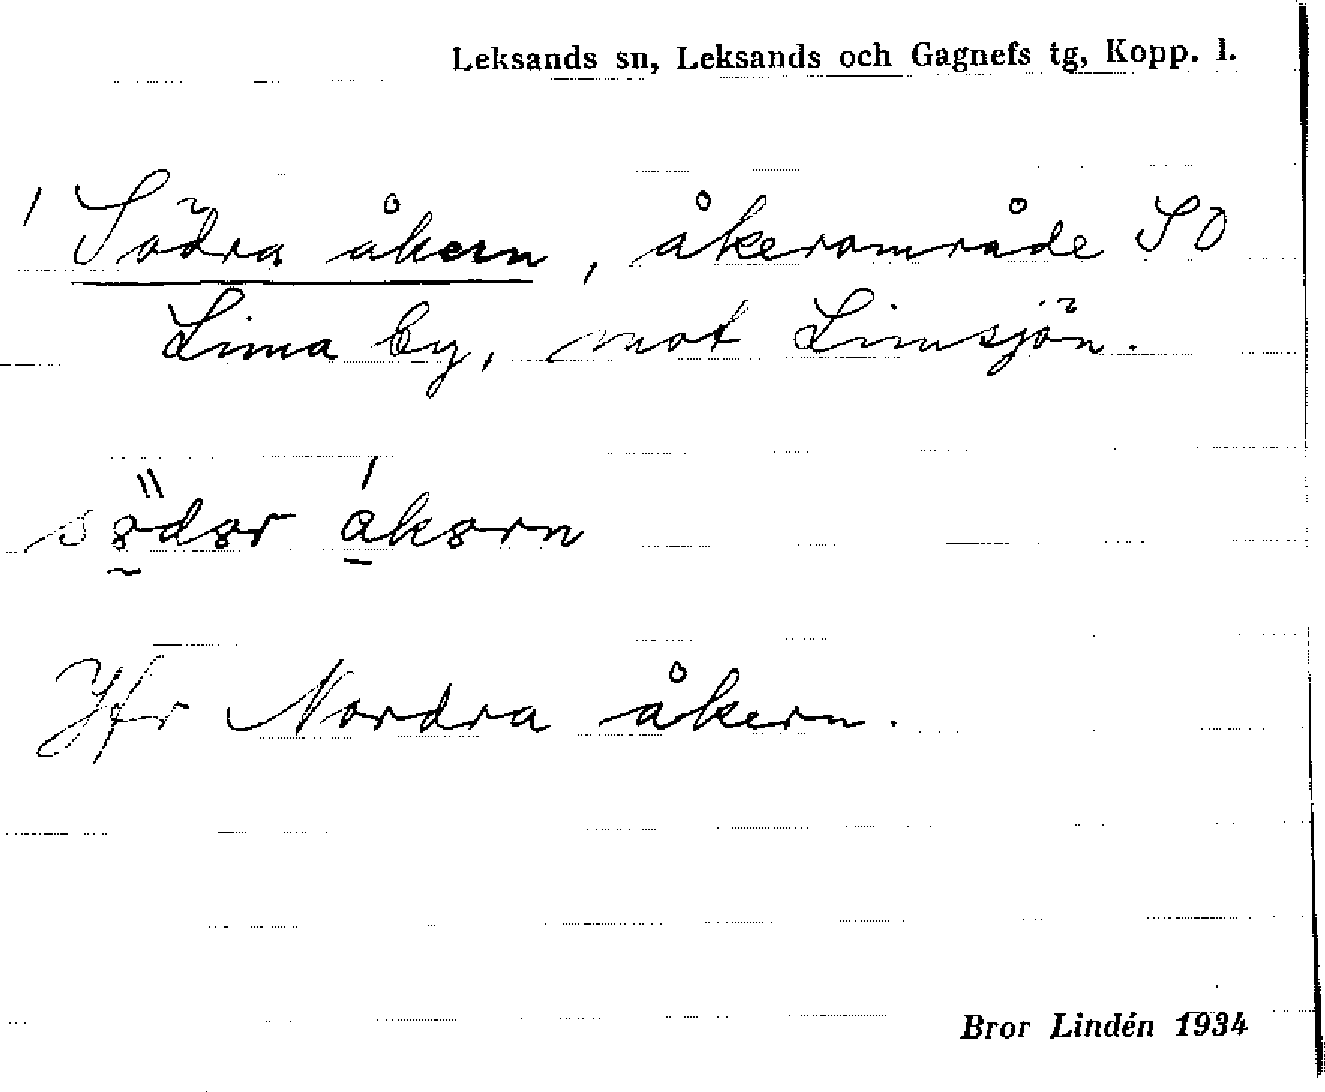 Leksands sn, Leksands och Gagnefs tg, Kopp. l.
/ Södra åkern, åkerområde SO
Lima by, mot Limsjön.
Jfr Nordra åkern.
Bror Lindén 1934